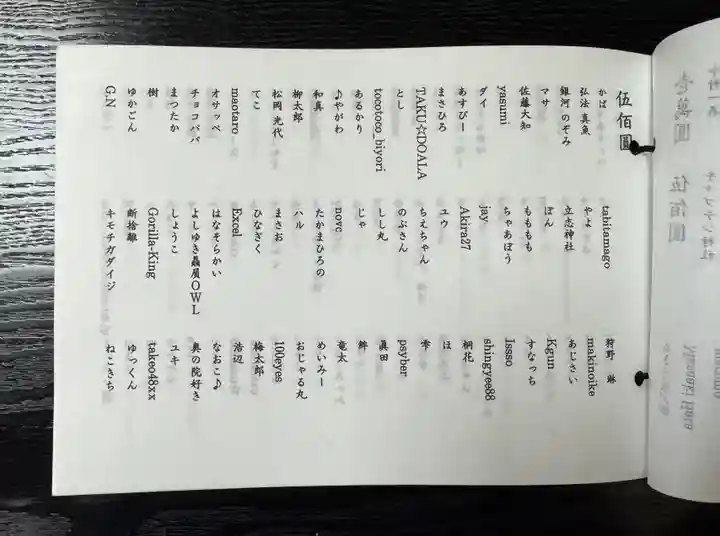 壱萬圓 伍佰圓
キャプテン神社
Masaaki Hata
伍佰圓
かば tabitamago 狩野 琳
弘法真魚 やよ makinoike
銀河のぞみ 立志神社 あじさい
マサ ぽん Kgun
佐藤大知 もももも すなっち
yasumi ちゃあぼう Issso
ダイ jay shingyee88
あすぴー Akira27 桐花
まさひろ ユウ ほ
TAKU☆DOALA ちえちゃん 雫
とし のぶさん psyber
tocotoco_biyori しし丸 眞田
あるかり じゃ 鉾
♪やがわ novc 竜太
和真 たかまひろの めいみー
柳太郎 ハル おじゃる丸
松岡光代 まさお 100eyes
てこ ひなぎく 梅太郎
maotaro Excel 浩辺
オサッペ はなそらかい なおこ♪
チョコパパ よしゆき贔屓OWL 奥の院好き
まつたか しょうこ ユキ
樹 Gorilla-King takeo48xx
ゆかごん 断捨離 ゆっくん
G.N キモチガダイジ ねこきち